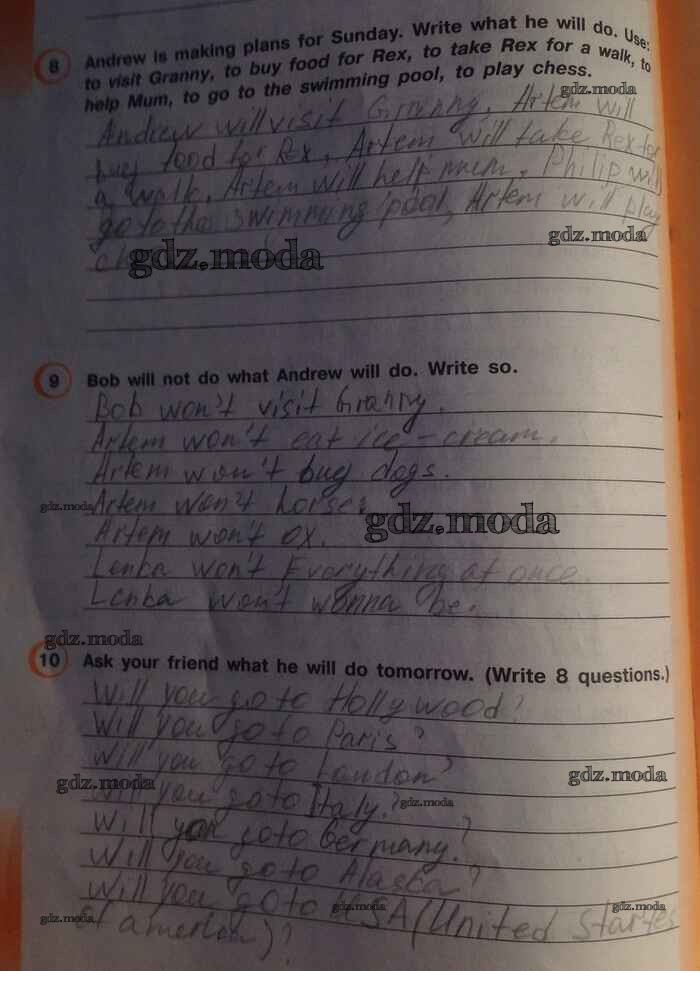 8 Andrew is making plans for Sunday. Write what he will do. Use:
to visit Granny, to buy food for Rex, to take Rex for a walk, to
help Mum, to go to the swimming pool, to play chess.
gdz.moda
Andrew will visit Granny. Artem will
buy food for Rex. Artem will take Rex for
a walk. Artem will help mum. Philip will
go to the swimming pool, Artem will play
gdz.moda
gdz.moda
9 Bob will not do what Andrew will do. Write so.
Bob won't visit Granny.
Artem won't eat ice-cream.
Artem won't bug dogs.
gdz.moda
Artem won't horses
gdz.moda
Artem won't ox.
Lenka won't Everything at once.
Lenka won't wonna be.
gdz.moda
10 Ask your friend what he will do tomorrow. (Write 8 questions.)
Will you go to Hollywood?
Will you go to Paris?
Will you go to London?
gdz.moda
gdz.moda
Will you go to Italy?
gdz.moda
Will you go to Germany?
Will you go to Alaska?
Will you go to USA (United Starfes
gdz.moda
gdz.moda
gdz.moda
of america)?